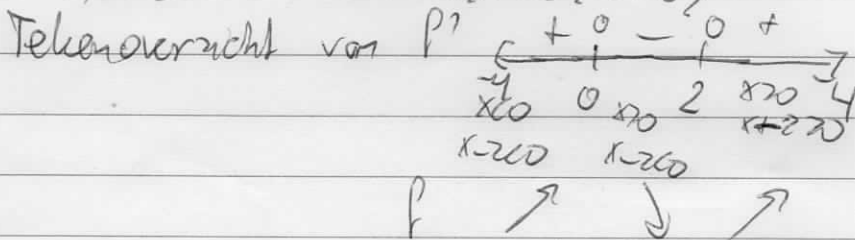 Tekenoverzicht van f' + 0 - 0 +
-4 0 2 4
x<0 x>0 x>0
x-2<0 x-2<0 x-2>0
f ↗ ↘ ↗